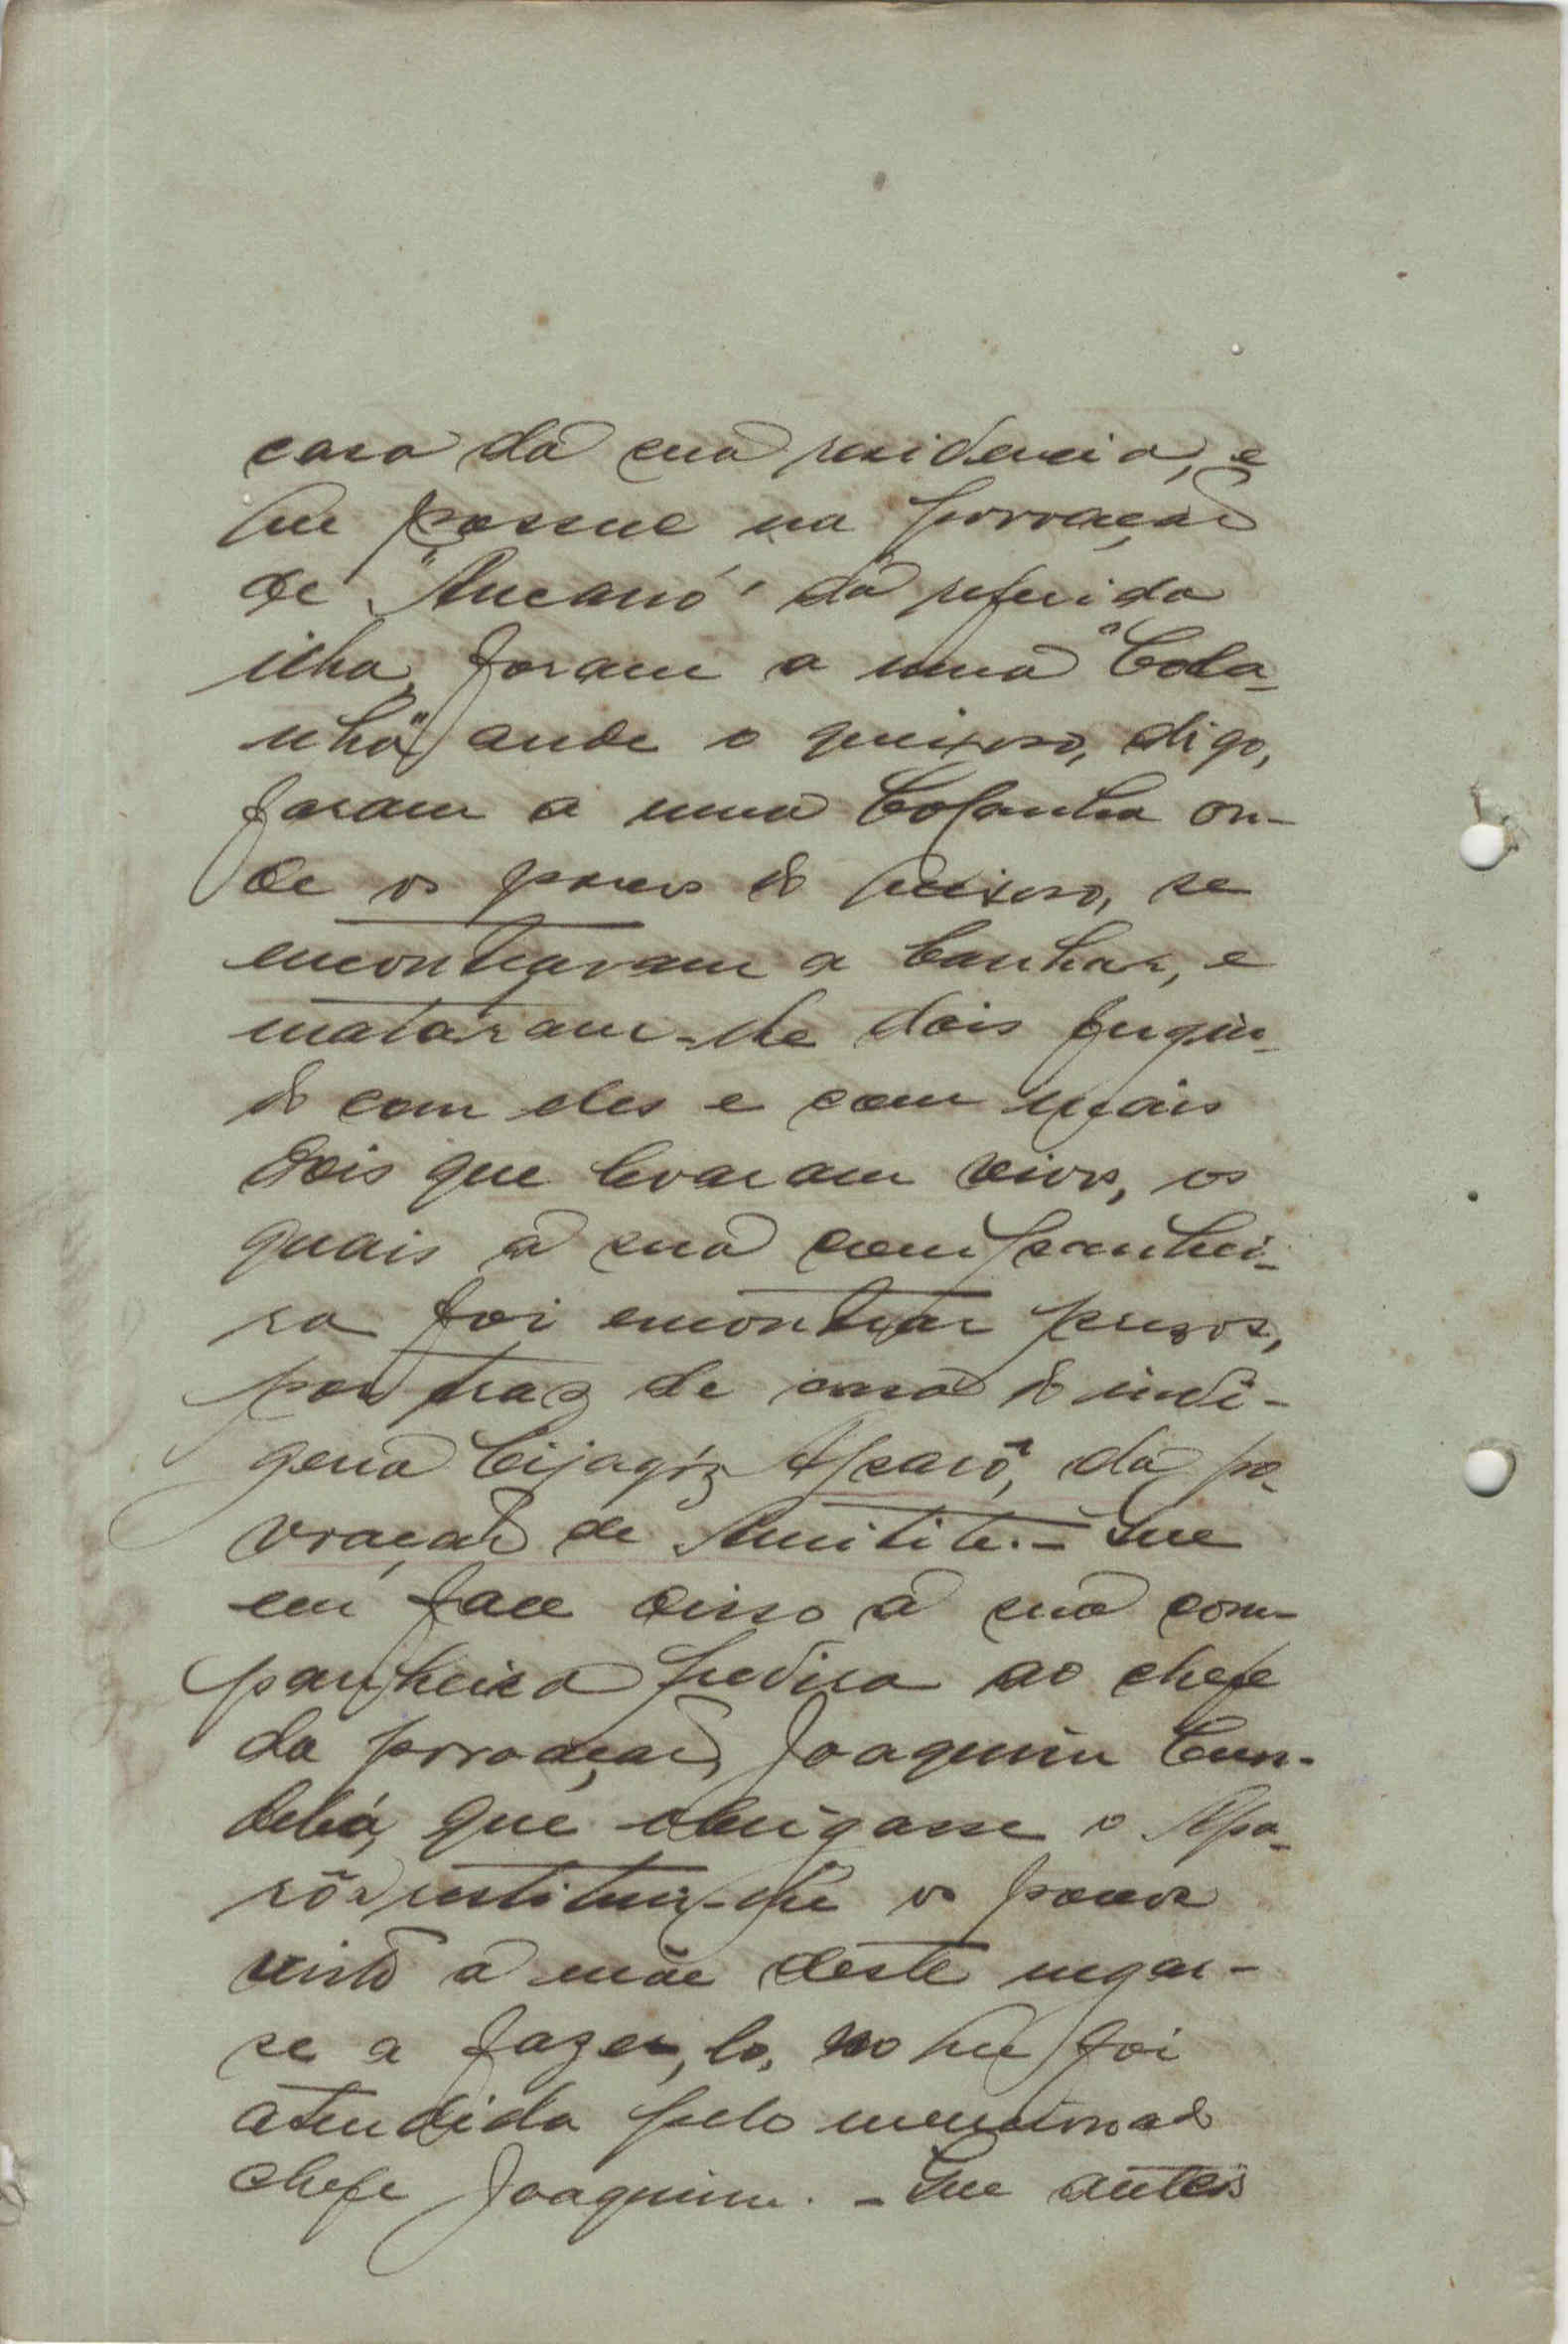 casa da sua residencia, e
que possue na povoação
de "Ancanó" da referida
ilha, foram a uma "bola-
nha" onde o queixoso, digo,
foram a uma bolanha on-
de os porcos do queixoso, se
encontravam a banhar, e
mataram-lhe dois fugin-
do com eles e com mais
dois que levaram vivos, os
quais a sua companhei-
ra foi encontrar presos,
por traz de casa do indi-
gena bijagóz Aparô, da po-
voação de Amitite. - Que
em face disso a sua com-
panheira pedira ao chefe
da povoação, Joaquim
que obrigasse o Apa-
rô a restituir-lhe os porcos
visto a mãe deste negar-
se a fazer,lo, no que foi
atendida pelo mencionado
chefe Joaquim. - Que antes